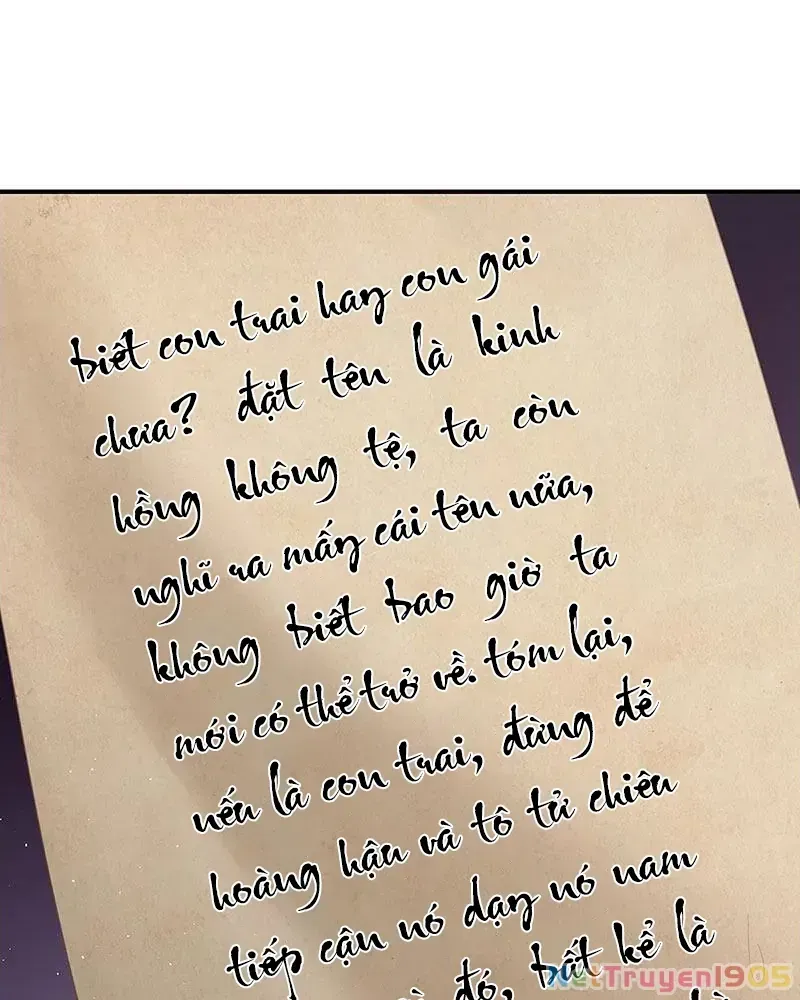 biết con trai hay con gái
chưa? đặt tên là kinh
hồng không tệ, ta còn
nghĩ ra mấy cái tên nữa,
không biết bao giờ ta
mới có thể trở về. tóm lại,
nếu là con trai, đừng để
hoàng hậu và tô tử chiêu
tiếp cận nó dạy nó nam
đó, bất kể là
NetTruyen1905